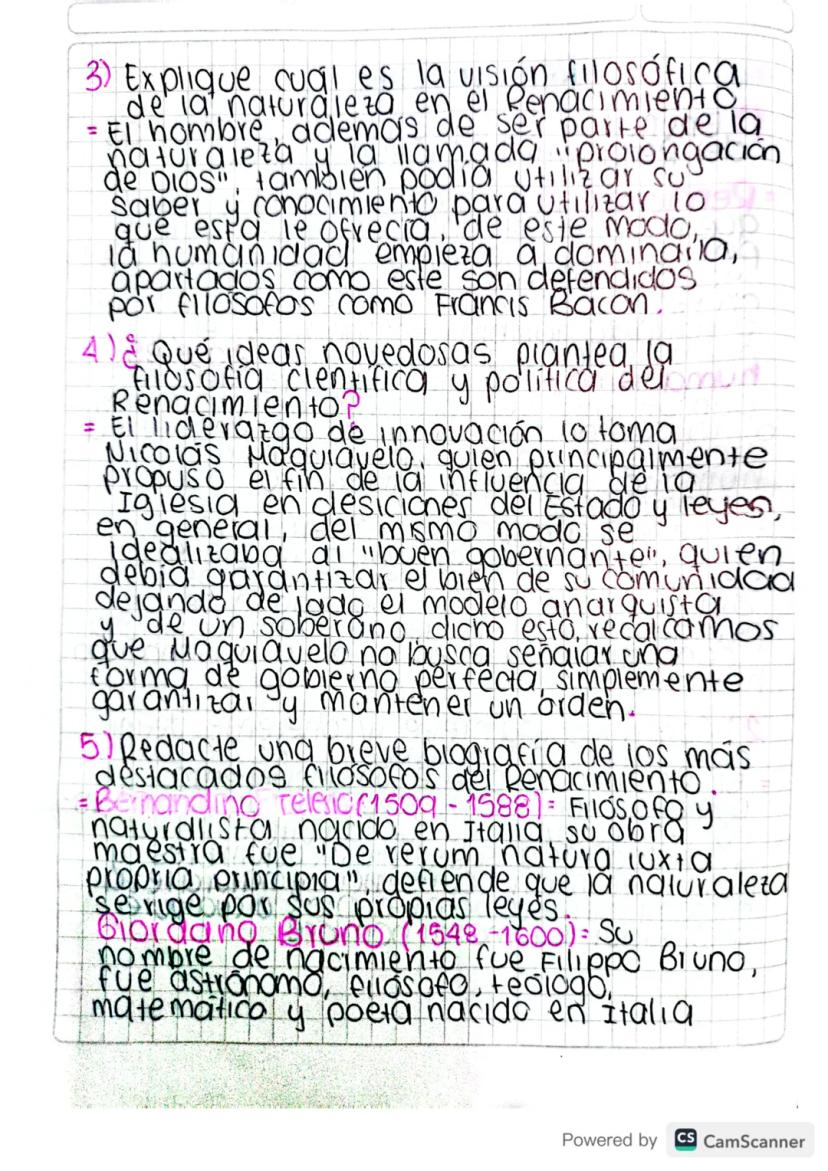 3) Explique cuál es la visión filosófica
de la naturaleza en el Renacimiento
= El hombre, además de ser parte de la
naturaleza y la llamada "prolongación
de Dios", también podía utilizar su
saber y conocimiento para utilizar lo
que esta le ofrecía, de este modo,
la humanidad empieza a dominarla,
apartados como este son defendidos
por filósofos como Francis Bacon.
4) ¿Qué ideas novedosas plantea la
filosofía científica y política del
Renacimiento?
= El liderazgo de innovación lo toma
Nicolás Maquiavelo, quien principalmente
propuso el fin de la influencia de la
Iglesia en desiciones del Estado y leyes,
en general, del mismo modo se
idealizaba al "buen gobernante", quien
debía garantizar el bien de su comunidad
dejando de lado el modelo anarquista
y de un soberano, dicho esto, recalcamos
que Maquiavelo no busca señalar una
forma de gobierno perfecta, simplemente
garantizar y mantener un orden.
5) Redacte una breve biografía de los más
destacados filósofos del Renacimiento.
= Bernandino Telesio (1509 - 1588): Filósofo y
naturalista nacido en Italia su obra
maestra fue "De rerum natura iuxta
propria principia", defiende que la naturaleza
se rige por sus propias leyes.
Giordano Bruno (1548 - 1600): Su
nombre de nacimiento fue Filippo Bruno,
fue astrónomo, filósofo, teólogo,
matemático y poeta nacido en Italia
Powered by CS CamScanner